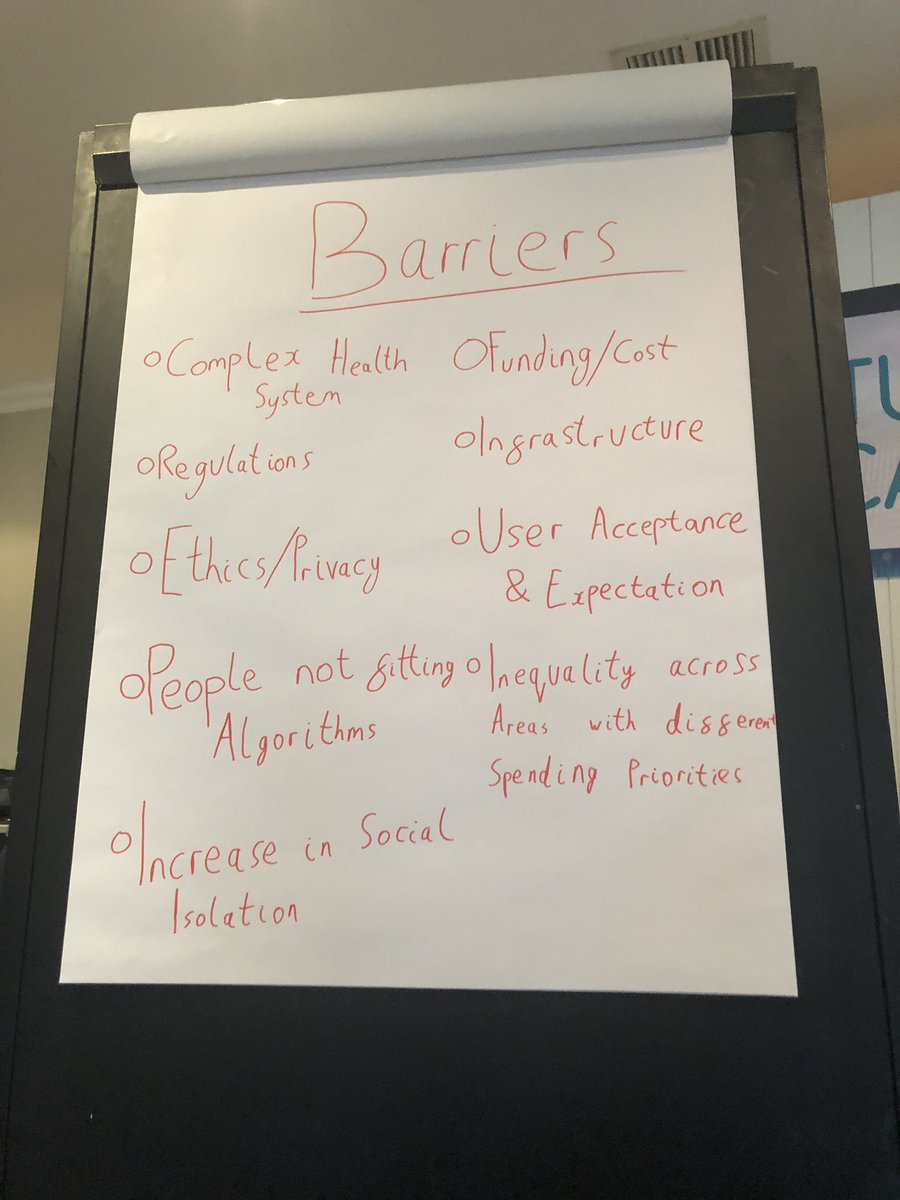 Barriers
o Complex Health
System
o Regulations
o Ethics/Privacy
o People not fitting
Algorithms
o Increase in Social
Isolation
o Funding/Cost
o Infrastructure
o User Acceptance
& Expectation
o Inequality across
Areas with different
Spending Priorities
TU
CA